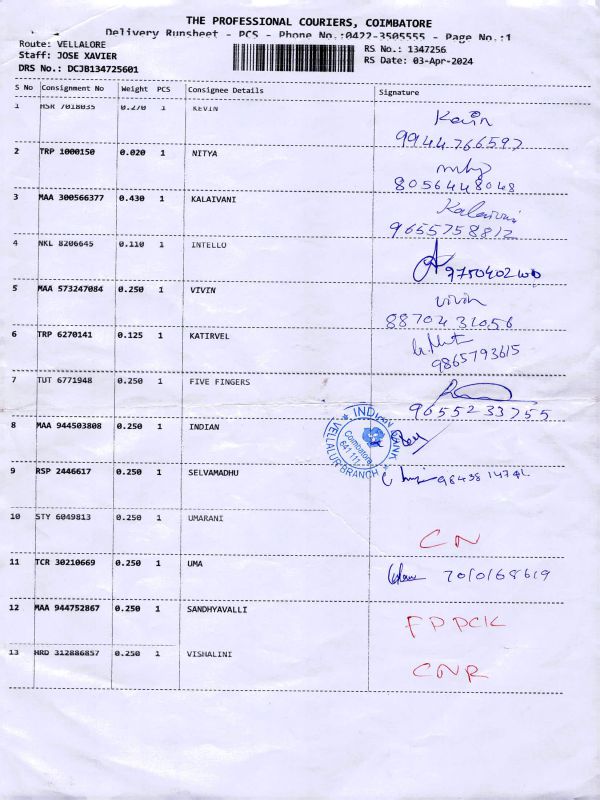 THE PROFESSIONAL COURIERS, COIMBATORE
Delivery Runsheet - PCS - Phone No.:0422-3505555 - Page No.:1
Route: VELLALORE
RS No.: 1347256
Staff: JOSE XAVIER
RS Date: 03-Apr-2024
DRS No.: DCJB134725601
S No Consignment No Weight PCS Consignee Details Signature
1 MSR 7018035 0.270 1 KEVIN Kevin
9944766597
2 TRP 1000150 0.020 1 NITYA
8056448048
3 MAA 300566377 0.430 1 KALAIVANI Kalaivani
9655758812
4 NKL 8206645 0.110 1 INTELLO
5 MAA 573247084 0.250 1 VIVIN vivin
8870431056
6 TRP 6270141 0.125 1 KATIRVEL
9865793615
7 TUT 6771948 0.250 1 FIVE FINGERS
9655233755
8 MAA 944503808 0.250 1 INDIAN
INDIAN BANK
Coimbatore
641 111
VELLALUR BRANCH
9 RSP 2446617 0.250 1 SELVAMADHU
10 STY 6049813 0.250 1 UMARANI CN
11 TCR 30210669 0.250 1 UMA 7010168619
12 MAA 944752867 0.250 1 SANDHYAVALLI FPPCK
13 HRD 312886857 0.250 1 VISHALINI CNR